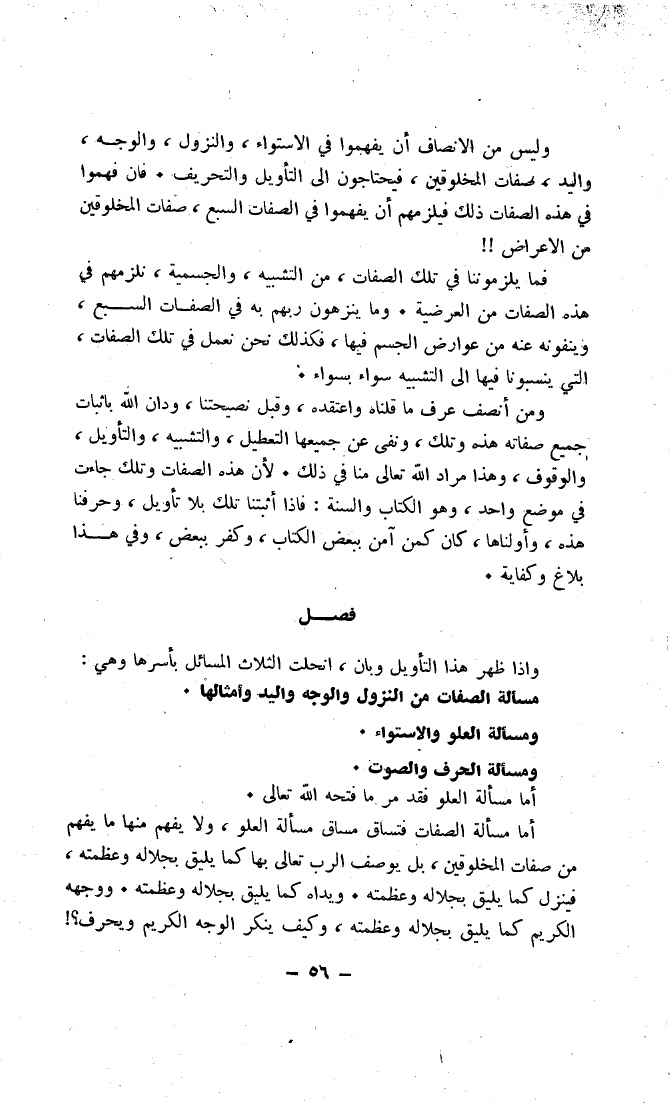 وليس من الانصاف أن يفهموا في الاستواء ، والنزول ، والوجـه ،
واليد ، صفات المخلوقين ، فيحتاجون الى التأويل والتحريف . فان فهموا
في هذه الصفات ذلك فيلزمهم أن يفهموا في الصفات السبع ، صفات المخلوقين
من الاعراض !!
فما يلزموننا في تلك الصفات ، من التشبيه ، والجسمية ، نلزمهم في
هذه الصفات من العرضية . وما ينزهون ربهم به في الصفـات السـبع ،
وينفونه عنه من عوارض الجسم فيها ، فكذلك نحن نعمل في تلك الصفات ،
التي ينسبونا فيها الى التشبيه سواء بسواء .
ومن أنصف عرف ما قلناه واعتقده ، وقبل نصيحتنا ، ودان الله باثبات
جميع صفاته هذه وتلك ، ونفى عن جميعها التعطيل ، والتشبيه ، والتأويل ،
والوقوف ، وهذا مراد الله تعالى منا في ذلك . لأن هذه الصفات وتلك جاءت
في موضع واحد ، وهو الكتاب والسنة : فاذا أثبتنا تلك بلا تأويل ، وحرفنا
هذه ، وأولناها ، كان كمن آمن ببعض الكتاب ، وكفر ببعض ، وفي هـــذا
بلاغ وكفاية .
فصــل
واذا ظهر هذا التأويل وبان ، انحلت الثلاث المسائل بأسرها وهي :
مسألة الصفات من النزول والوجه واليد وأمثالها .
ومسألة العلو والاستواء .
ومسألة الحرف والصوت .
أما مسألة العلو فقد مر ما فتحه الله تعالى .
أما مسألة الصفات فتساق مساق مسألة العلو ، ولا يفهم منها ما يفهم
من صفات المخلوقين ، بل يوصف الرب تعالى بها كما يليق بجلاله وعظمته ،
فينزل كما يليق بجلاله وعظمته . ويداه كما يليق بجلاله وعظمته . ووجهه
الكريم كما يليق بجلاله وعظمته ، وكيف ينكر الوجه الكريم ويحرف؟!
– ٥٦ –